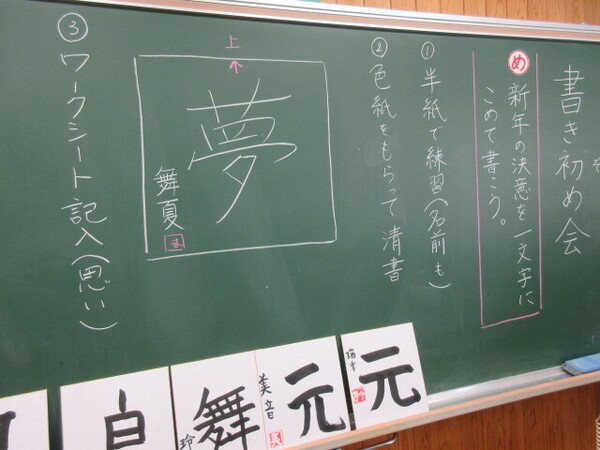 書き初め会
ぞ
め
新年の決意を一文字に
こめて書こう。
① 半紙で練習(名前も)
② 色紙をもらって清書
上
↑
夢
舞夏
ま
③ ワークシート記入(思い)
元
元
美音
舞
玲